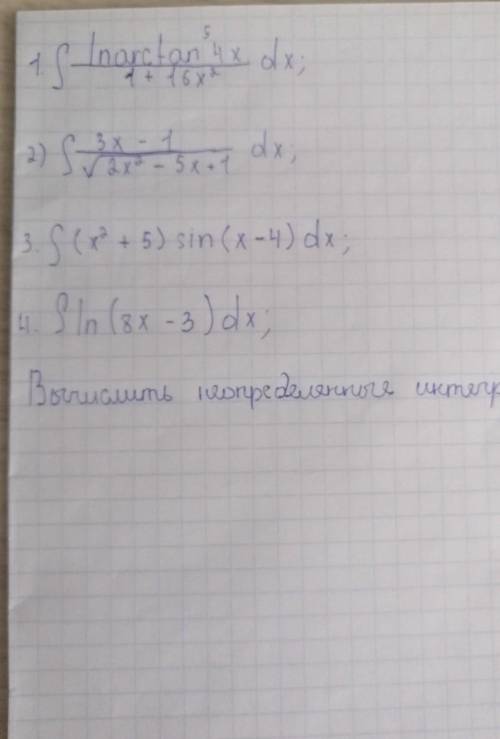 1. ∫ lnarctan⁵4x / 1 + 16x² dx;
2) ∫ 3x - 1 / √2x² - 5x + 1 dx;
3. ∫(x² + 5) sin(x-4) dx;
4. ∫ln(8x - 3)dx;
Вычислить неопределенные интегр